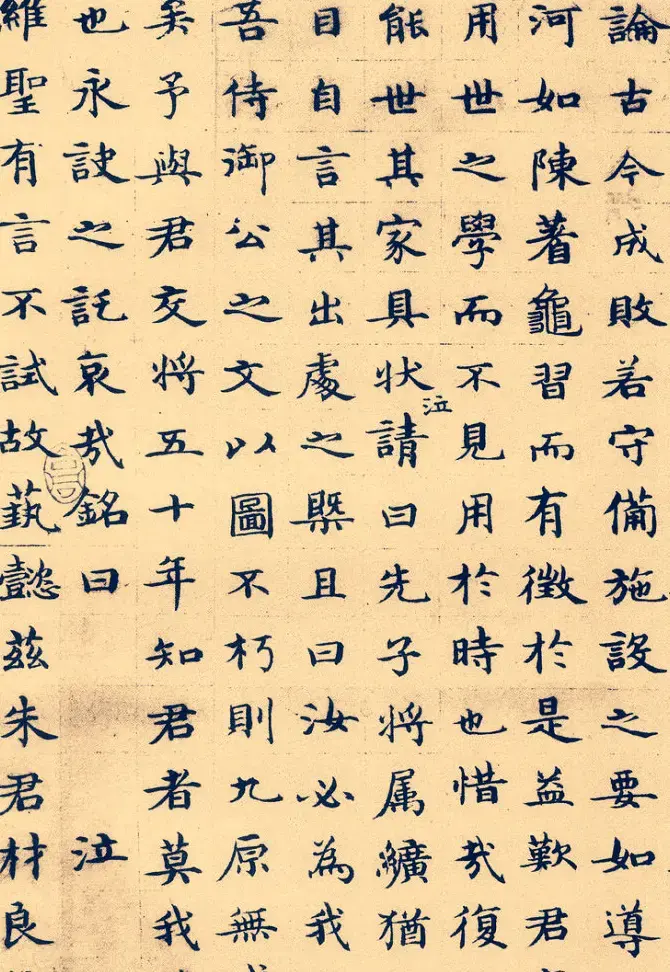 論古今成敗若守備施設之要如導
河如陳蓍龜習而有徵於是益歎君
用世之學而不見用於時也惜哉復
能世其家具状請泣曰先子将属纊猶
目自言其出處之槩且曰汝必為我
吾侍御公之文以圖不朽則九原無
矣予與君交将五十年知君者莫我
也永訣之託哀哉銘曰 泣
維聖有言不試故蓺懿茲朱君材良